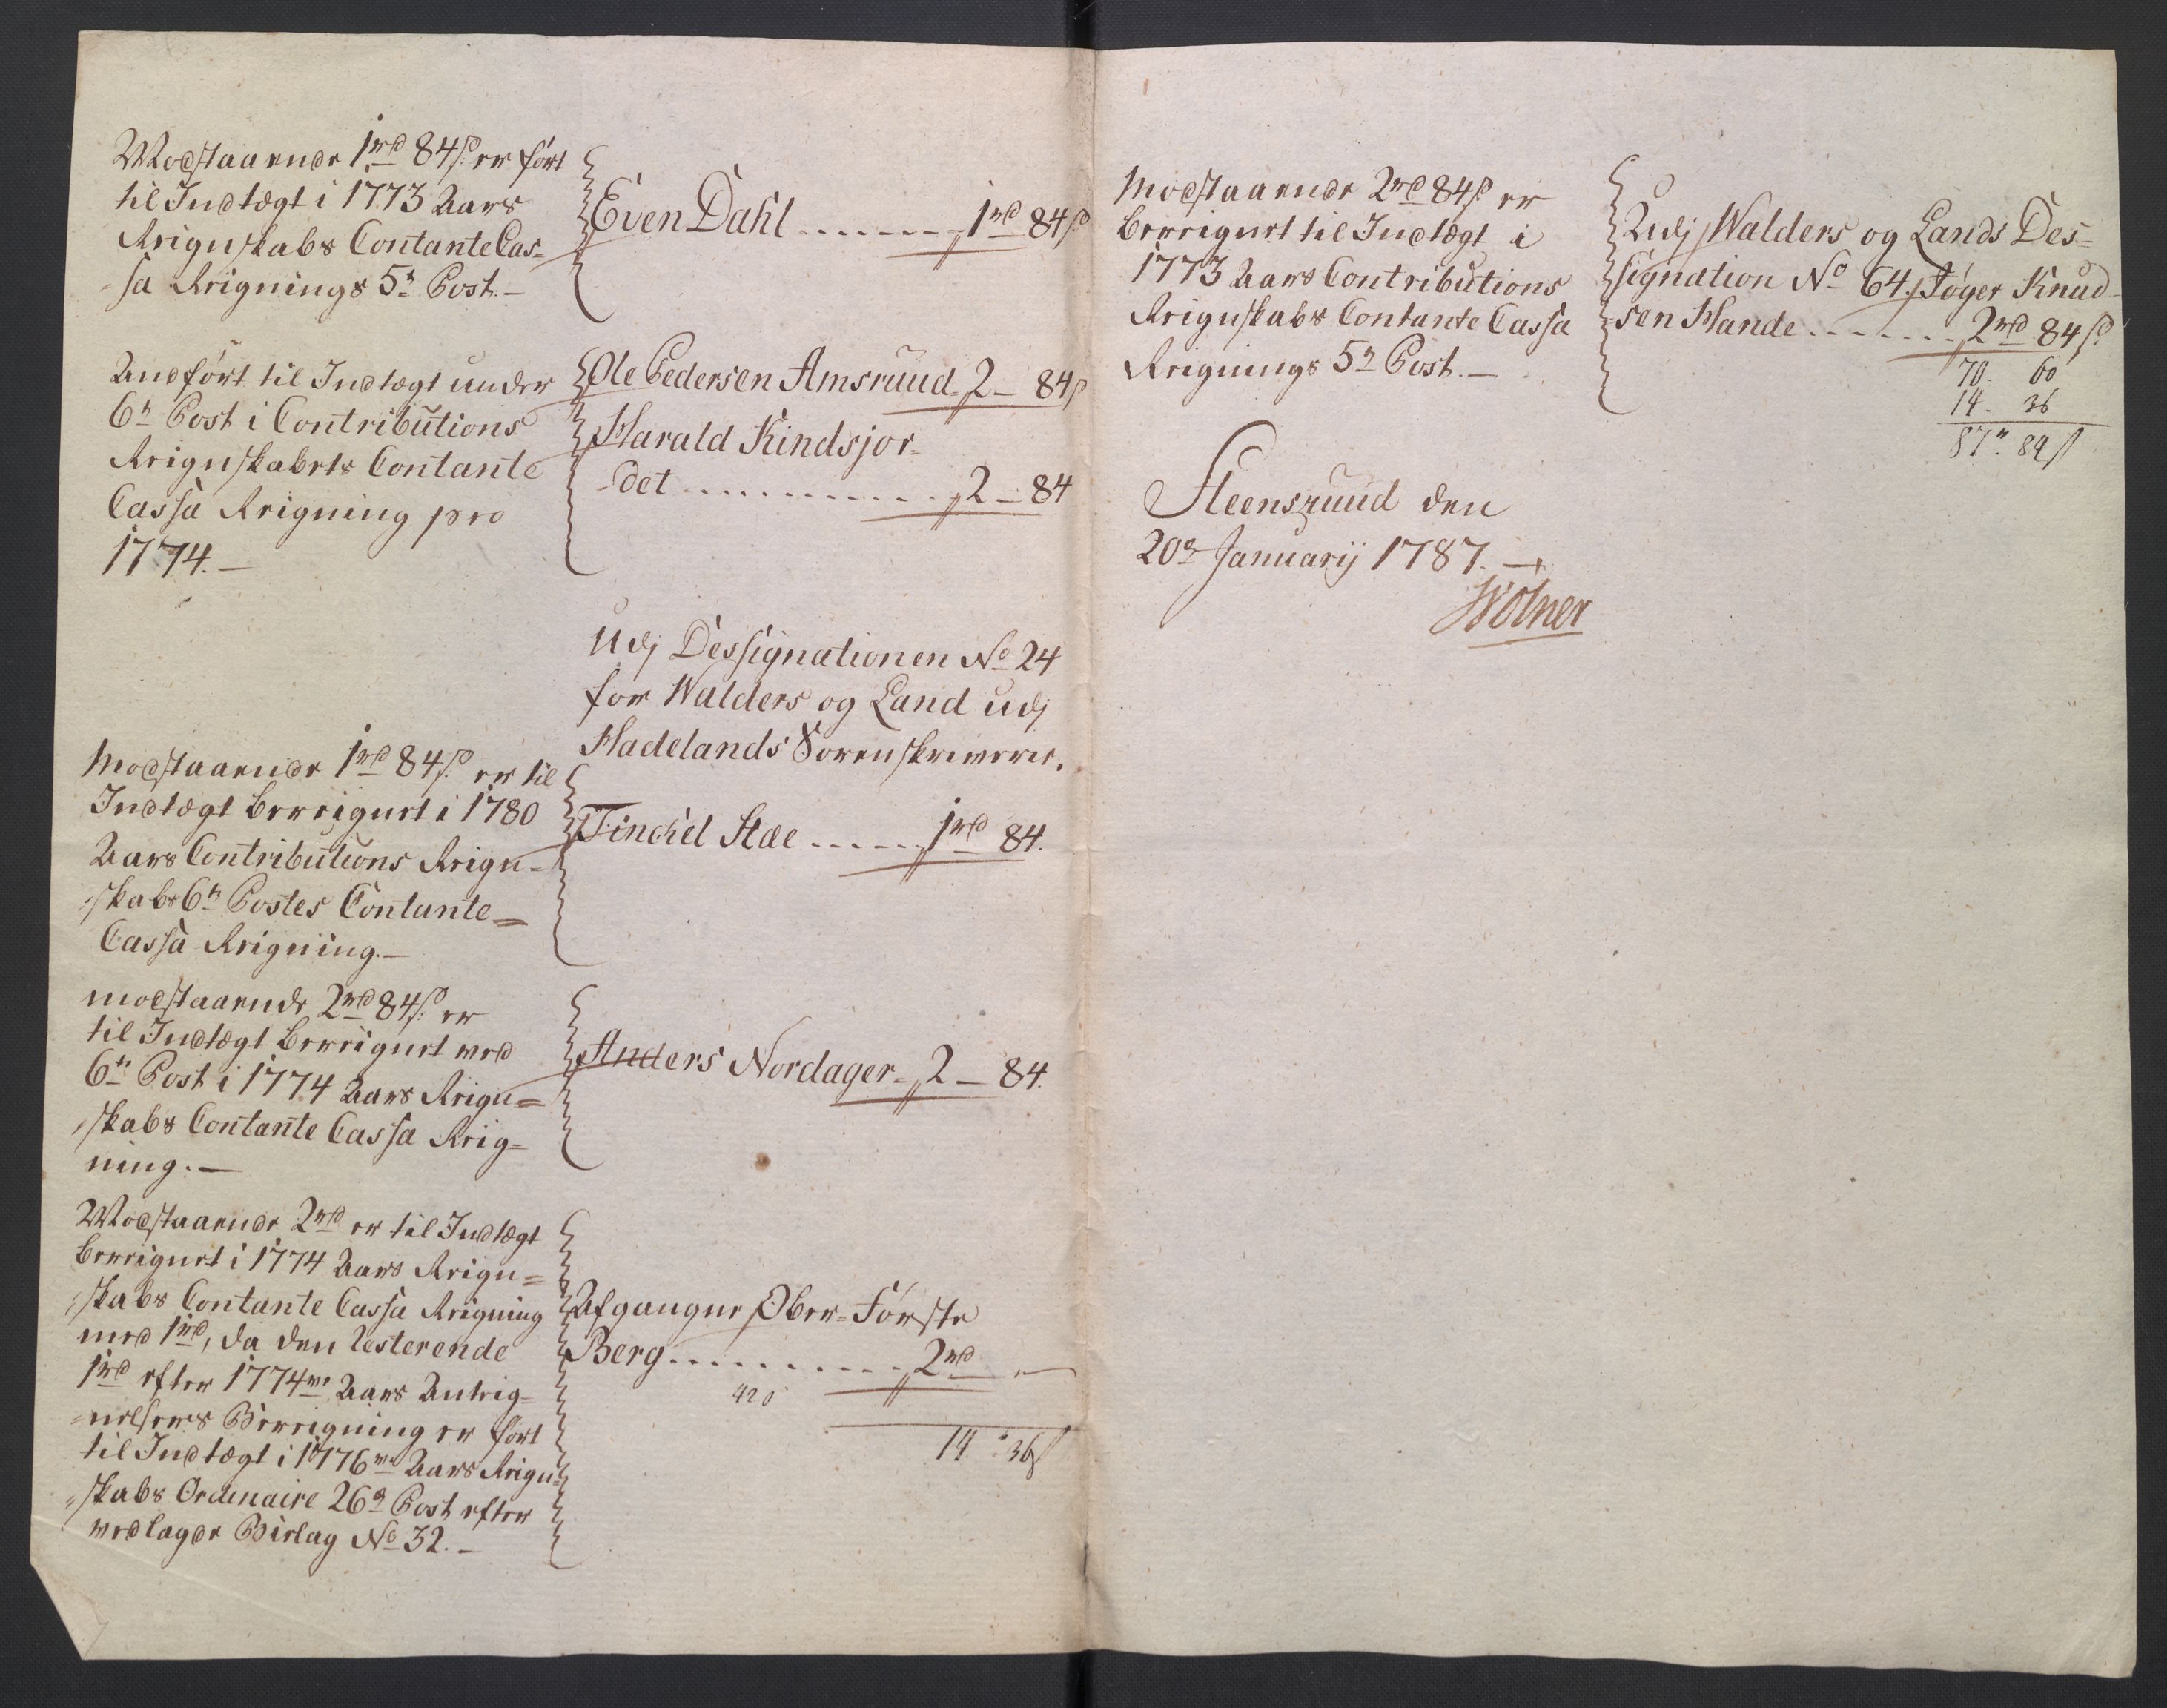 Modstaaende 1rd 84s: er ført
til Indtægt i 1773 Aars
Reignskabs Contante Cas-
sa Reignings 5t Post.-
Even Dahl ........ 1rd 84s
Anført til Indtægt under
6t Post i Contributions
Reignskabets Contante
Cassa Reigning pro
1774.-
Ole Pedersen Amsruud - 2 - 84s
Harald Kindsjor-
det ............. 2 - 84
Udj Dessignationen No 24
for Walders og Land udj
Hadelands Sorenskriverie.
Modstaaende 1rd 84s: er til
Indtægt bereignet i 1780
Aars Contributions Reign-
skabs 6t Postes Contante=
Cassa Reigning.-
Tinchel Stae ...... 1rd 84.
modstaaende 2rd 84s: er
til Indtægt bereignet ved
6te Post i 1774 Aars Reign=
skabs Contante Cassa Reig=
ning.-
Anders Nordager - 2 - 84.
Modstaaende 2rd er til Indtægt
bereignet i 1774 Aars Reign=
skabs Contante Cassa Reigning
med 1rd, da den resterende
1rd efter 1774ve Aars Anteig-
nelsers Bereigning er ført
til Indtægt i 1776ve Aars Reign=
skabs Ordinaire 26d Post efter
vedlagde Bielag No 32.-
Afgangne Ober-Förste
Berg ........... 2rd -
420
14 " 36s
Modstaaende 2rd 84s er
bereignet til Indtægt i
1773 Aars Contributions
Reignskabs Contante Cassa
Reignings 5t Post.-
Udj Walders og Lands Des=
signation No 64. Tøger Knud-
sen Hande ....... 2rd 84s
70. 60
14 - 36
87" 84s
Steensruud den
20de Januarij 1787.-
Wølner